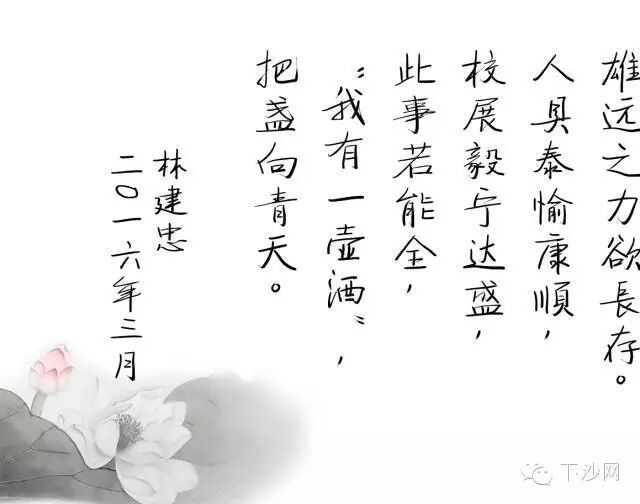 雄远之力欲長存。
人具泰愉康順，
校展毅宁达盛，
此事若能全，
“我有一壶酒”，
把盏向青天。
林建忠
二〇一六年三月
下沙网